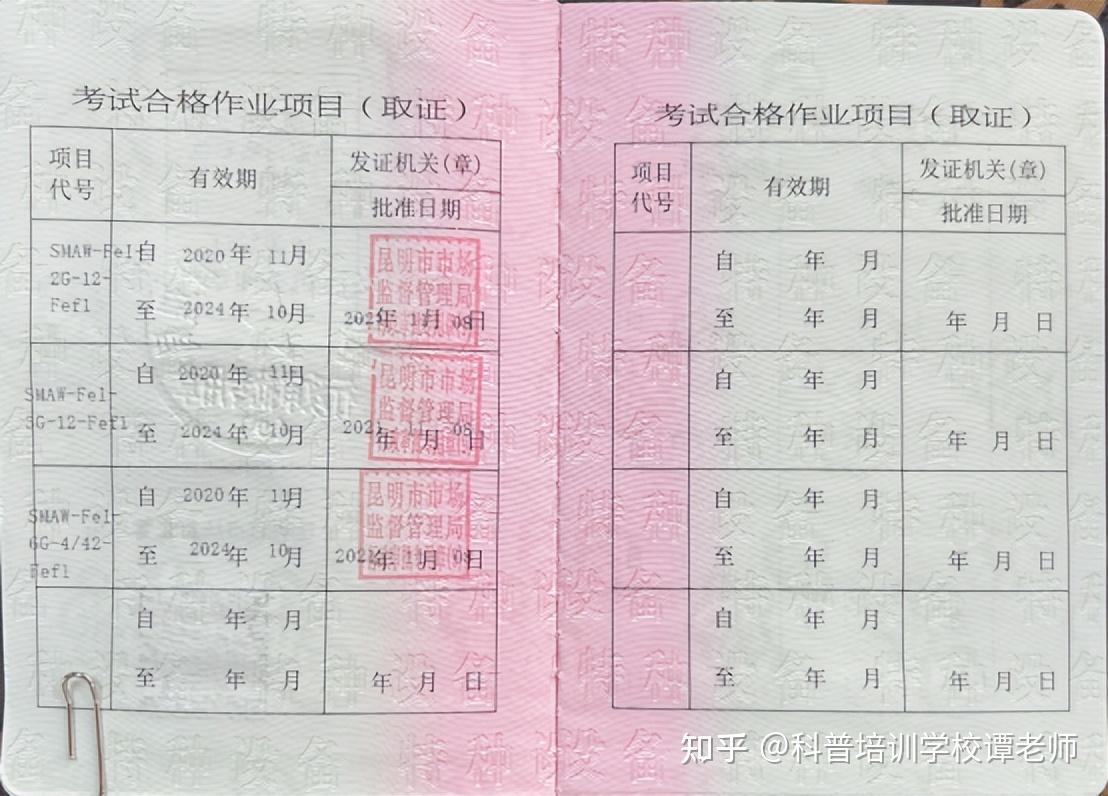 考试合格作业项目（取证）
项目代号 有效期 发证机关(章)
批准日期
SMAW-FeⅠ-
2G-12-
Fef1
自 2020年 11月
至 2024年 10月
昆明市市场
监督管理局
年 11月 08日
SMAW-Fe1-
3G-12-Fef1
自 2020年 11月
至 2024年 10月
昆明市市场
监督管理局
年 11月 08日
SMAW-Fe1-
6G-4/42-
Fef1
自 2020年 11月
至 2024年 10月
昆明市市场
监督管理局
年 11月 08日
自 年 月
至 年 月 年 月 日
考试合格作业项目（取证）
项目代号 有效期 发证机关(章)
批准日期
自 年 月
至 年 月 年 月 日
自 年 月
至 年 月 年 月 日
自 年 月
至 年 月 年 月 日
自 年 月
至 年 月 年 月 日
特种设备
知乎 @科普培训学校谭老师